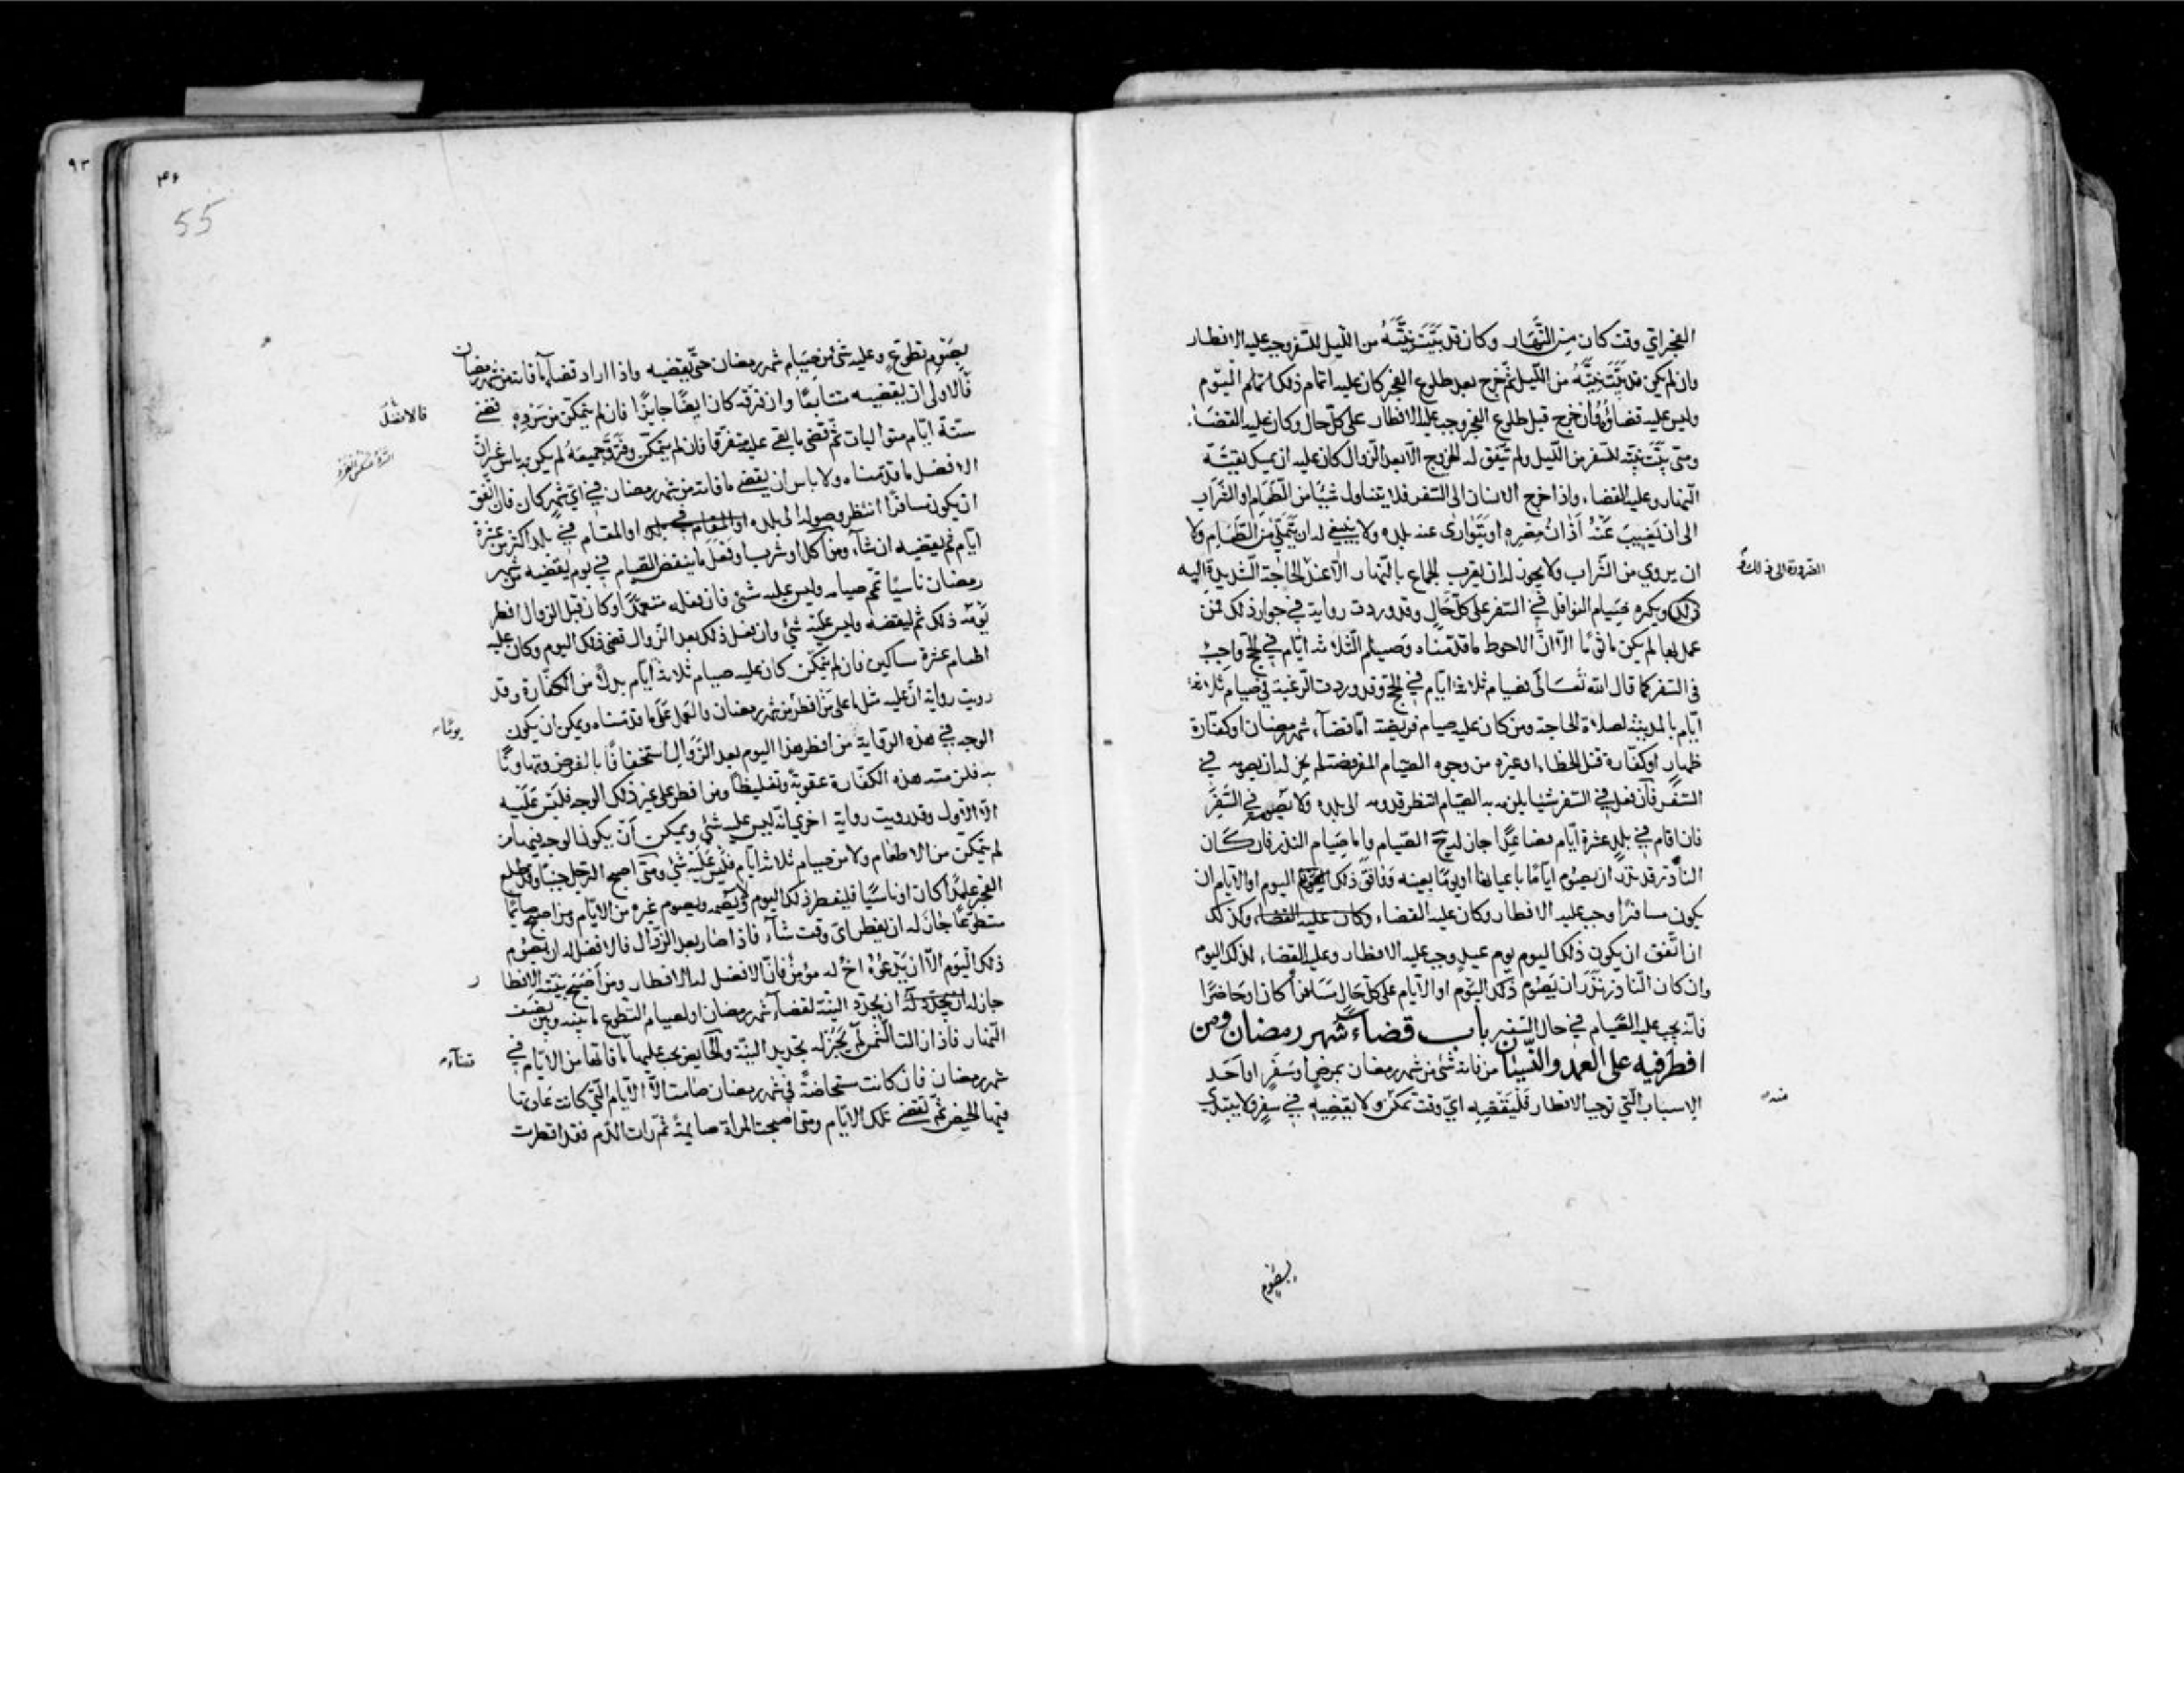 الفجر اي وقت كان من النَّهار وكان قد بيَّت نيَّته من اللّيل للسّفر وجب عليه الافطار
وان لم يكن قد بيَّت نيَّتهُ من اللّيل ثم خرج بعد طلوع الفجر كان عليه اتمام ذلك اليوم
وليس عليه قضاؤه وان خرج قبل طلوع الفجر وجب عليه الافطار على كلّ حال وكان عليه القضاء
ومتى بيَّت نيّته للسّفر من اللّيل ولم يتّفق له الخروج الّا بعد الزّوال كان عليه ان يمسك بقيّة
النهار وعليه القضاء واذا خرج الانسان الى السّفر فلا يتناول شيئا من الطّعام او الشّراب
الى ان يغيب عنهُ اذانُ مصره او يتوارى عنه بلده ولا ينبغي له ان يتملّى من الطّعام ولا
ان يروي من الشّراب ولا يجوز له ان يقرب الجماع بالنّهار الّا عند الحاجة الشّديدة اليه
الضرورة الى ذلك
ذلك ويكره صيام النوافل في السّفر على كلّ حال وقد وردت رواية في جواز ذلك فمن
عمل بها لم يكن ماثومًا الّا انّ الاحوط ما قدّمناه وصيام الثّلاثة ايّام في الحجّ واجب
في السّفر كما قال الله تعالى فصيام ثلاثة ايّام في الحجّ وقد وردت الرّغبة في صيام ثلاثة
ايّام بالمدينة لصلاة الحاجة ومن كان عليه صيام فريضة امّا قضاء شهر رمضان او كفّارة
ظهار او كفّارة قتل الخطاء او غيره من وجوه الصّيام المفروضة لم يجز له ان يصومه في
السّفر فان فعل في السّفر شيئا يلزمه به الصّيام انتظر قدومه الى بلده ولا يصوم في السّفر
فان اقام في بلد عشرة ايّام فصاعدًا جاز له ح الصّيام واما صيام النذر فان كان
النّاذر قد نذر ان يصوم ايّامًا باعيانها او يومًا بعينه ووافق ذلك اليوم او الايّام ان
يكون مسافرًا وجب عليه الافطار وكان عليه القضاء وكان عليه القضاء وكذلك
ان اتّفق ان يكون ذلك اليوم يوم عيد وجب عليه الافطار وعليه القضاء لذلك اليوم
وان كان النّاذر نذر ان يصوم ذلك اليوم او الايّام على كلّ حال مسافرًا كان او حاضرًا
فانّه يجب عليه الصّيام في حال السّفر باب قضاء شهر رمضان ومن
افطر فيه على العمد والنّسيان من فاته شئ من شهر رمضان بمرض او سفر او احد
الاسباب الّتي توجب الافطار فليقضه ايّ وقت تمكّن ولا يقضيه في سفر ولا يبتدئ
منه
بصوم
٩٣
۴۶
55
بصوم تطوّع وعليه شئ من صيام شهر رمضان حتّى يقضيه واذا اراد قضاء ما فاته من شهر رمضان
فالاولى ان يقضيه متتابعًا وان فرّقه كان ايضًا جايزًا فان لم يتمكّن من سرده قضى
فالافضل
ستّة ايّام متواليات ثم قضى ما بقي عليه متفرّقا فان لم يتمكّن وفرّق جميعه لم يكن به باس غير ان
الافضل ما قدّمناه ولا باس ان يقضي ما فاته من شهر رمضان في ايّ شهر كان فان اتّفق
ان يكون مسافرًا انتظر وصوله الى بلده او المقام في بلد او المقام في بلد اكثر من عشرة
ايّام ثم يقضيه ان شاء ومن اكل او شرب او فعل ما ينقض الصّيام في يوم يقضيه من شهر
رمضان ناسيًا تمّم صيامه وليس عليه شئ فان فعله متعمّدًا وكان قبل الزوال افطر
يومه ذلك ثم ليقضه وليس عليه شئ وان فعل ذلك بعد الزّوال قضى ذلك اليوم وكان عليه
اطعام عشرة مساكين فان لم يتمكّن كان عليه صيام ثلاثة ايّام بدلًا من الكفّارة وقد
رويت رواية انّ عليه مثل ما على من افطر من شهر رمضان والعمل على ما قدّمناه ويمكن ان يكون
يومًا
الوجه في هذه الرّواية من افطر هذا اليوم بعد الزّوال استخفافًا بالفرض وتهاونًا
به فلزمته هذه الكفّارة عقوبة وتغليظًا ومن افطر على غير ذلك الوجه فليس عليه
الّا الاوّل وقد رويت رواية اخرى انّه ليس عليه شئ ويمكن ان يكون الوجه فيها من
لم يتمكّن من الاطعام ولا من صيام ثلاثة ايّام فليس عليه شئ ومتى اصبح الرّجل جنبًا وقد طلع
الفجر عامدًا كان او ناسيًا فليفطر ذلك اليوم ولا يصمه ويصوم غيره من الايّام ومن اصبح صائمًا
متطوّعًا جاز له ان يفطر ايّ وقت شاء فاذا صار بعد الزّوال فالافضل له ان يصوم
ذلك اليوم الّا ان يدعوه اخ له مؤمن فانّ الافضل له الافطار ومن اصبح بنيّة الافطا
ر
جاز له ان يجدّد له ان يجدّد النيّة لقضاء شهر رمضان او لصيام التطوّع ما بينه وبين نصف
النّهار فاذا زالت الشّمس لم يجز له تجديد النيّة والحايض يجب عليها ما فاتها من الايّام في
قضاء
شهر رمضان فان كانت مستحاضة في شهر رمضان صامت الّا الايّام الّتي كانت عادتها
فيها الحيض ثمّ تقضي تلك الايّام ومتى اصبحت المراة صايمة ثمّ رات الدّم فقد افطرت